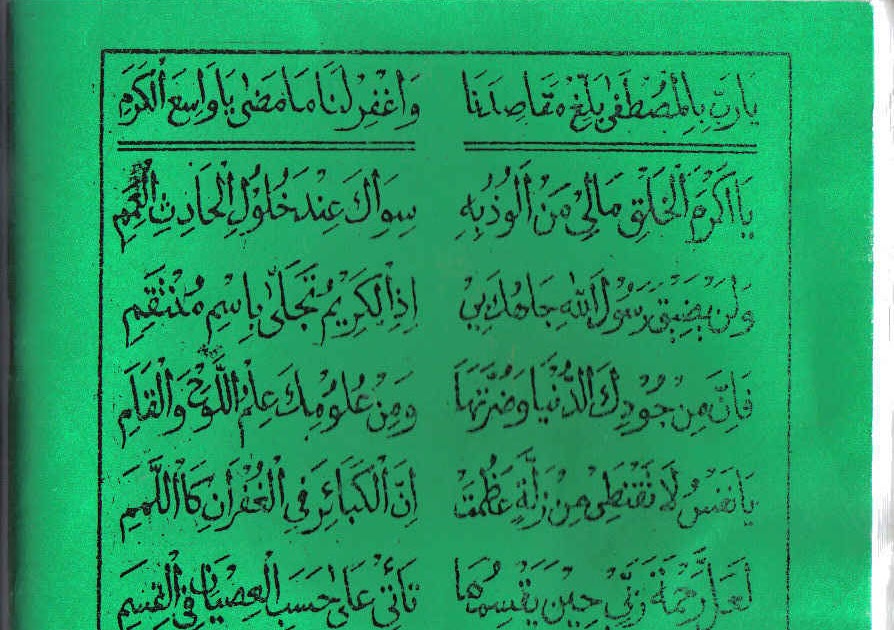 يَارَبِّ بِالْمُصْطَفٰى بَلِّغْ مَقَاصِدَنَا وَاغْفِرْلَنَا مَامَضٰى يَا وَاسِعَ الْكَرَمِ
يَا اَكْرَمَ الْخَلْقِ مَالِيْ مَنْ اَلُوْذُبِهِ سِوَاكَ عِنْدَ حُلُوْلِ الْحَادِثِ الْعَمِمِ
وَلَنْ يَضِيْقَ رَسُوْلَ اللهِ جَاهُكَ بِيْ اِذِالْكَرِيْمُ تَجَلّٰى بِاِسْمِ مُنْتَقِمِ
فَاِنَّ مِنْ جُوْدِكَ الدُّنْيَا وَضُرَّتَهَا وَمِنْ عُلُوْمِكَ عِلْمُ اللَّوْحِ وَالْقَلَمِ
يَانَفْسُ لَا تَقْنَطِيْ مِنْ زَلَّةٍ عَظُمَتْ اِنَّ الْكَبَائِرَ فِي الْغُفْرَانِ كَااللَّمَمِ
لَعَلَّ رَحْمَةَ رَبِّيْ حِيْنَ يَقْسِمُهَا تَأْتِيْ عَلٰى حَسَبِ الْعِصْيَانِ فِي الْقِسَمِ